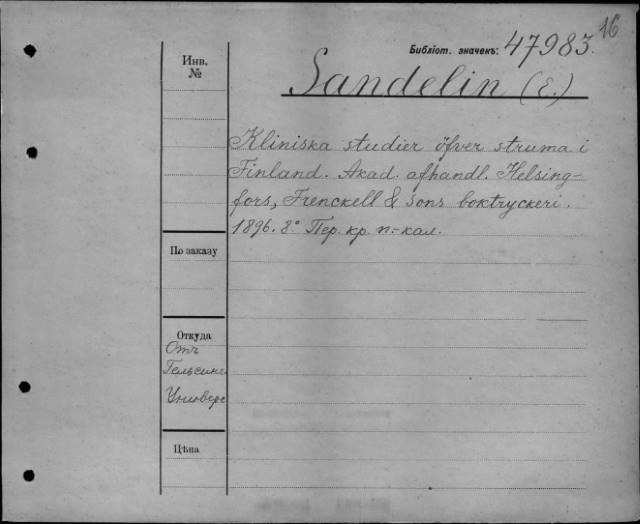 16
Библіот. значекъ: 47983.
Инв.
№
Sandelin (E.)
Kliniska studier öfver struma i
Finland. Akad. afhandl. Helsing-
fors, Frenckell & sons boktryckeri.
1896. 8° Пер. кр. п.-кал.
По заказу
Откуда
Отъ
Гельсинг.
Универс
Цѣна